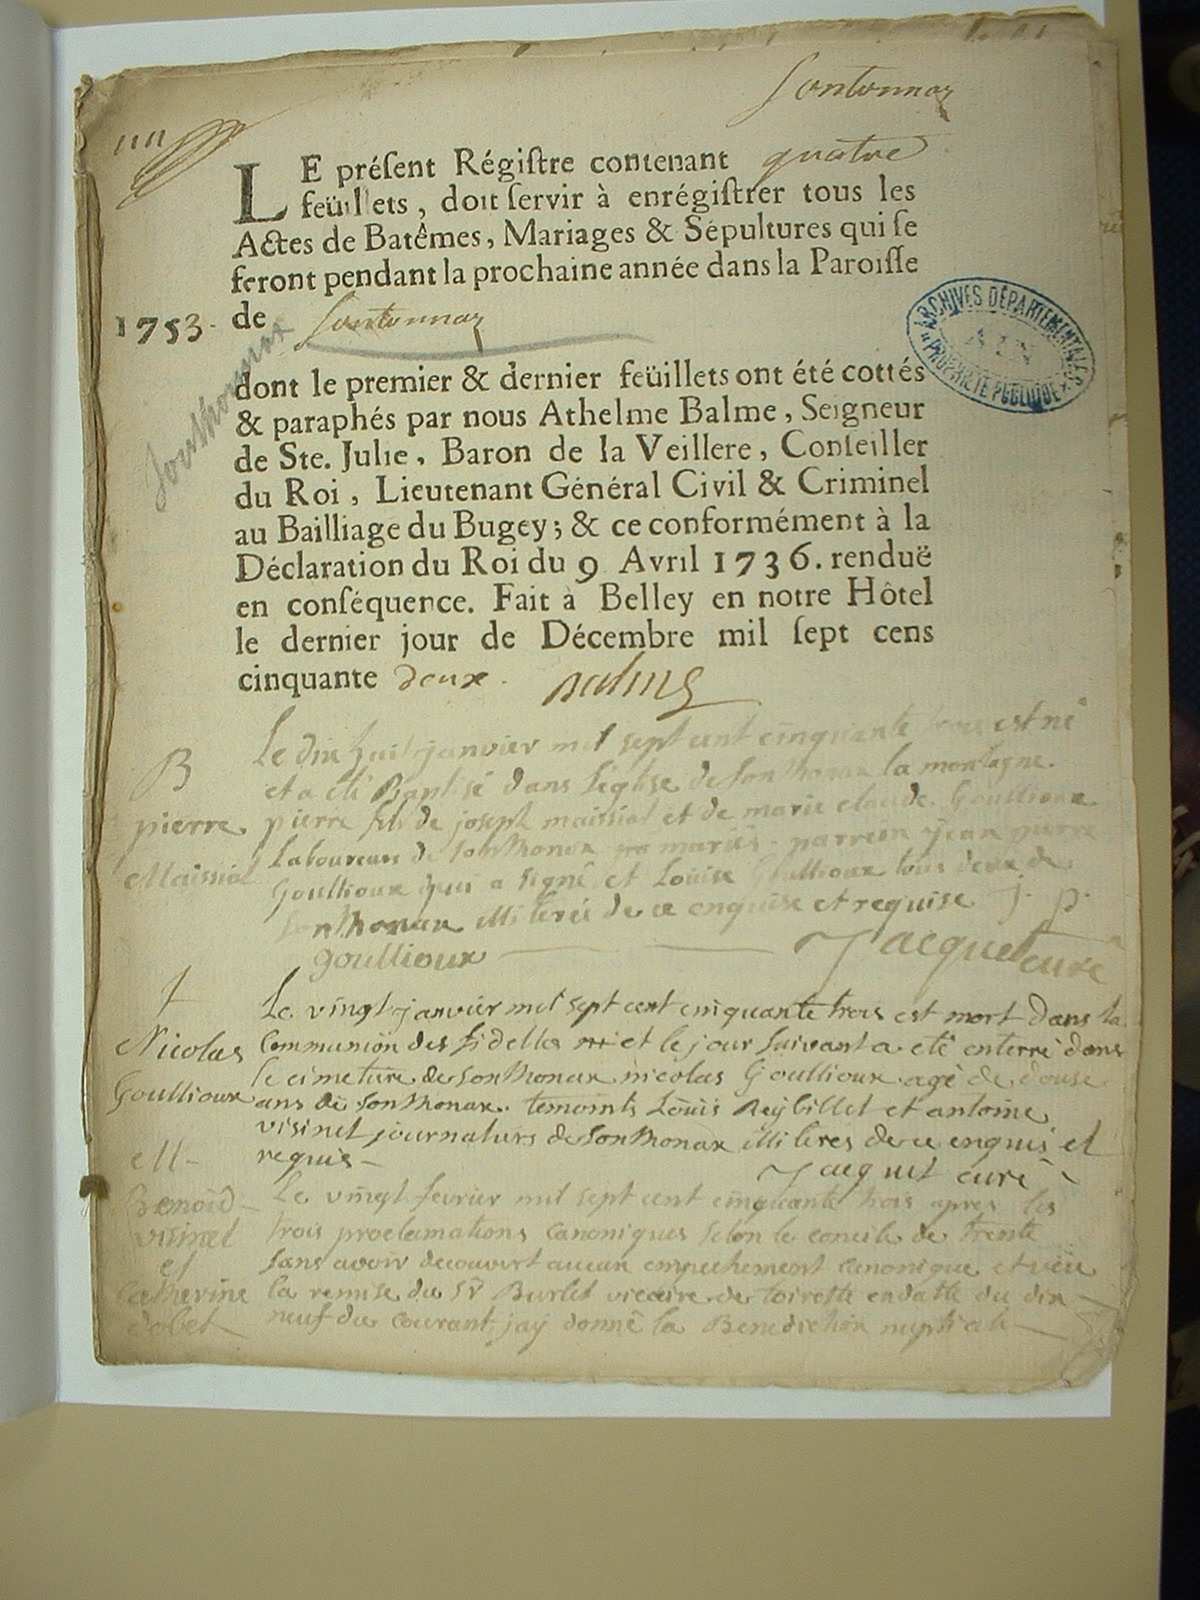 Sontonnax
LE présent Régistre contenant quatre
feüillets, doit servir à enrégistrer tous les
Actes de Batêmes, Mariages & Sépultures qui se
feront pendant la prochaine année dans la Paroisse
1753. de Sontonnax
Sonthonnax
ARCHIVES DÉPARTEMENTALES
AIN
PROPRIÉTÉ PUBLIQUE
dont le premier & dernier feüillets ont été cottés
& paraphés par nous Athelme Balme, Seigneur
de Ste. Julie, Baron de la Veillere, Conseiller
du Roi, Lieutenant Général Civil & Criminel
au Bailliage du Bugey; & ce conformément à la
Déclaration du Roi du 9 Avril 1736. renduë
en conséquence. Fait à Belley en notre Hôtel
le dernier jour de Décembre mil sept cens
cinquante deux. Balme
B
pierre
Maissiat
Le dix huit janvier mil sept cent cinquante trois est né
et a été Baptisé dans l'église de Sonthonax la montagne
pierre fils de joseph maissiat et de marie claude Goullioux
Laboureurs de Sonthonax mariés parrein jean pierre
Goullioux qui a signé et Louise Goullioux tous deux de
Sonthonax illiterée de ce enquise et requise j. p.
Goullioux Jacquet curé
†
Nicolas
Goullioux
Le vingt janvier mil sept cent cinquante trois est mort dans la
Communion des fidelles et le jour suivant a été enterré dans
le cimetiere de Sonthonax nicolas Goullioux agé de douse
ans de Sonthonax. temoints Louis Reybillet et antoine
visinet journaliers de Sonthonax illiteres de ce enquis et
requis Jacquet curé
M
Benoid
visinet
et
Catherine
dobet
Le vingt fevrier mil sept cent cinquante trois apres les
trois proclamations canoniques selon le concile de trente
sans avoir decouvert aucun empechement canonique et veu
la remise du Sr Burlet vicaire de toirette en datte du dix
neuf du courant jay donné la Benediction nuptiale